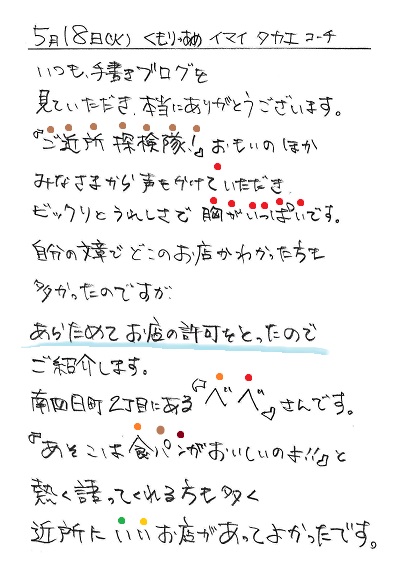 5月18日(火) くもり→あめ イマイ タカエ コーチ
いつも、手書きブログを
見ていただき、本当にありがとうございます。
『ご近所 探検隊!』おもいのほか
みなさまから声をかけていただき、
ビックリとうれしさで 胸がいっぱいです。
自分の文章で どこのお店かわかった方も
多かったのですが、
あらためて お店の許可をとったので
ご紹介します。
南四日町2丁目にある『べべ』さんです。
『あそこは食パンがおいしいのよ!!』と
熱く語ってくれる方も多く
近所にいいお店があってよかったです。